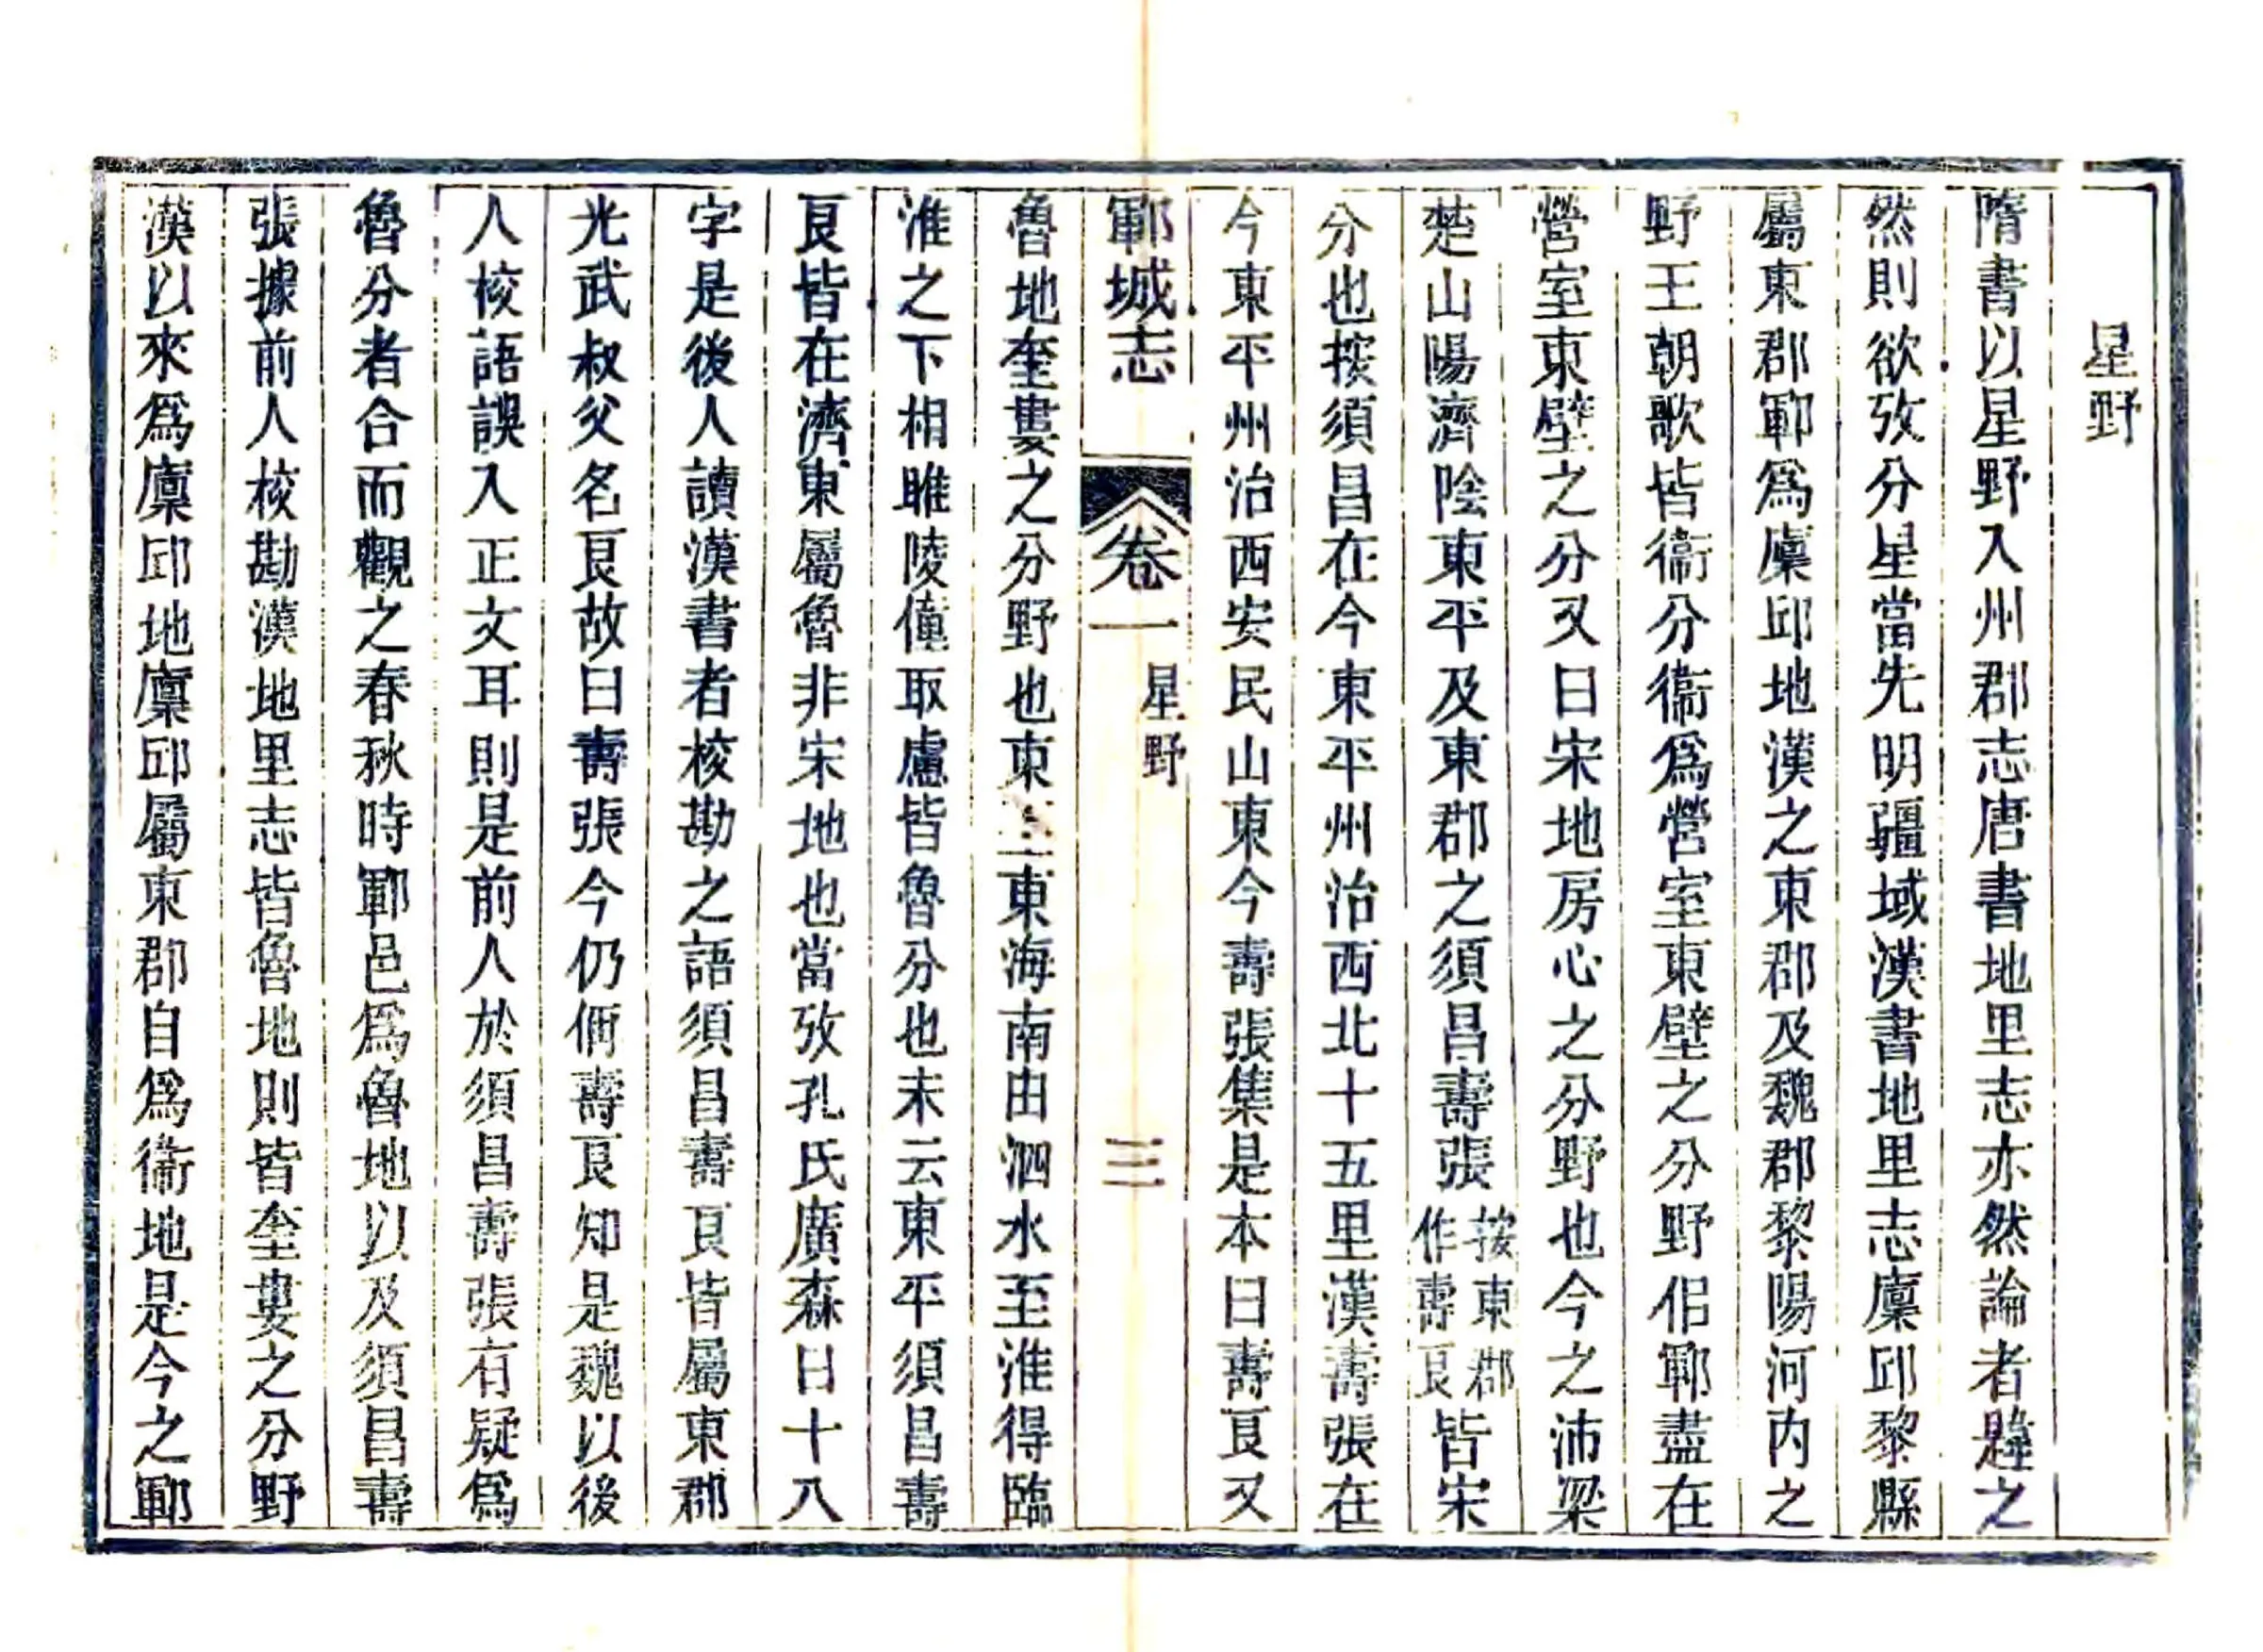 星野
隋書以星野入州郡志唐書地里志亦然論者韙之
然則欲攷分星當先明疆域漢書地里志廩邱黎縣
屬東郡鄆爲廩邱地漢之東郡及魏郡黎陽河内之
野王朝歌皆衞分衞爲營室東壁之分野佀鄆盡在
營室東壁之分又曰宋地房心之分野也今之沛梁
楚山陽濟陰東平及東郡之須昌壽張按東郡作壽良皆宋
分也按須昌在今東平州治西北十五里漢壽張在
今東平州治西安民山東今壽張集是本曰壽良又
鄆城志 卷一 星野 三
魯地奎婁之分野也東東海南由泗水至淮得臨
淮之下相睢陵僮取慮皆魯分也末云東平須昌壽
良皆在濟東屬魯非宋地也當攷孔氏廣森曰十八
字是後人讀漢書者校勘之語須昌壽良皆屬東郡
光武叔父名良故曰壽張今仍偁壽良知是魏以後
人校語誤入正文耳則是前人於須昌壽張有疑爲
魯分者合而觀之春秋時鄆邑爲魯地以及須昌壽
張據前人校勘漢地里志皆魯地則皆奎婁之分野
漢以來爲廩邱地廩邱屬東郡自爲衞地是今之鄆